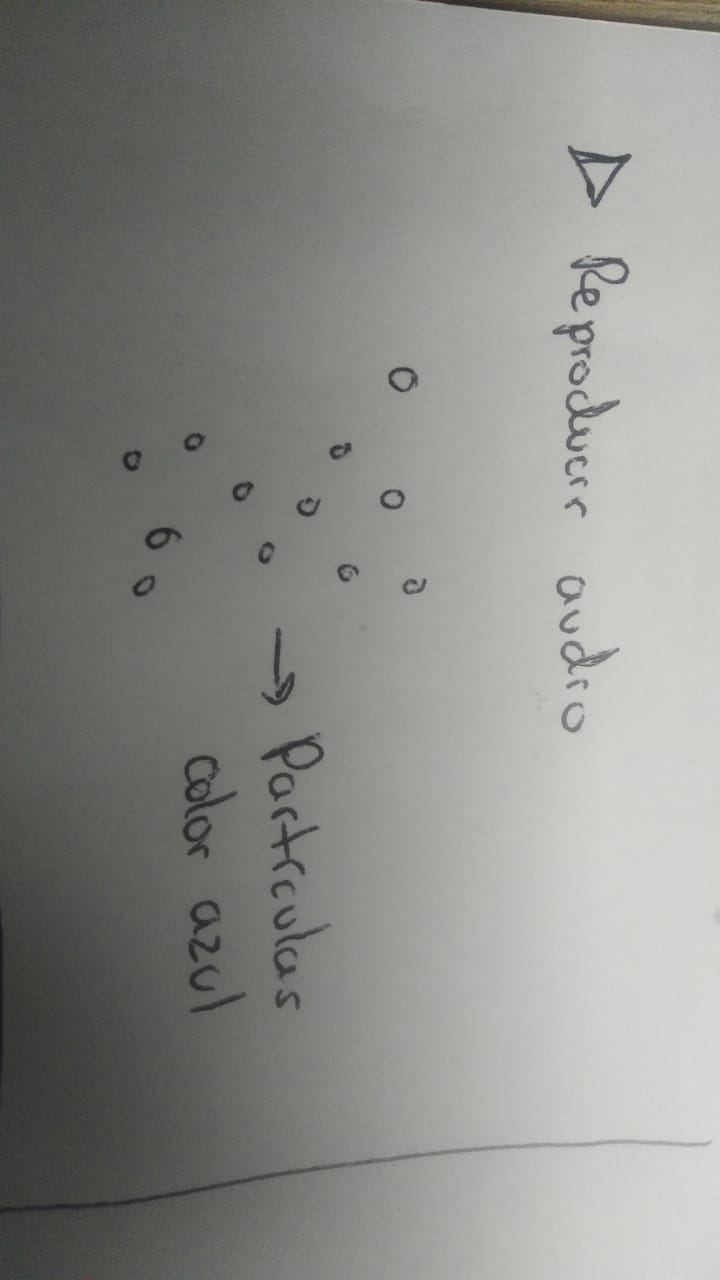 Reproducir audio
→ Partículas
color azul